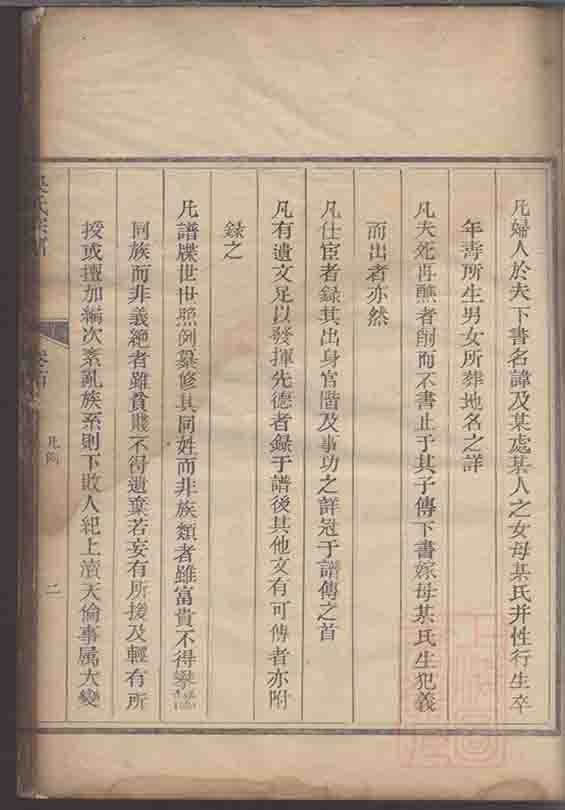 凡婦人於夫下書名諱及某處某人之女母某氏并性行生卒
年壽所生男女所葬地名之詳
凡夫死再醮者削而不書止于其子傳下書嫁母某氏生犯義
而出者亦然
凡仕宦者録其出身官階及事功之詳冠于譜傳之首
凡有遺文足以發揮先德者録于譜後其他文有可傳者亦附
録之
凡譜牒世世照例纂修其同姓而非族類者雖富貴不得攀
同族而非義絶者雖貧賤不得遺棄若妄有所援及輕有所
授或擅加編次紊亂族系則下敗人紀上瀆天倫事属大變
吳氏宗譜
凡例
二